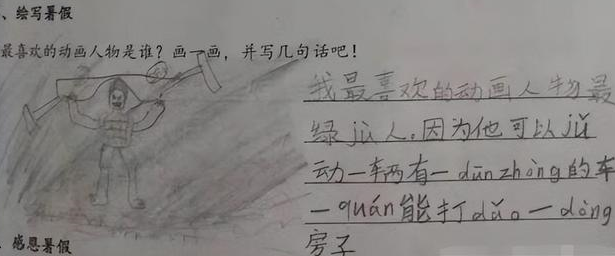 、绘写暑假
最喜欢的动画人物是谁？画一画，并写几句话吧！
我最喜欢的动画人物最
绿jù人.因为他可以jǔ
动一辆有一dūnzhòng的车
一quán能打dǎo一dòng
房子
感恩暑假